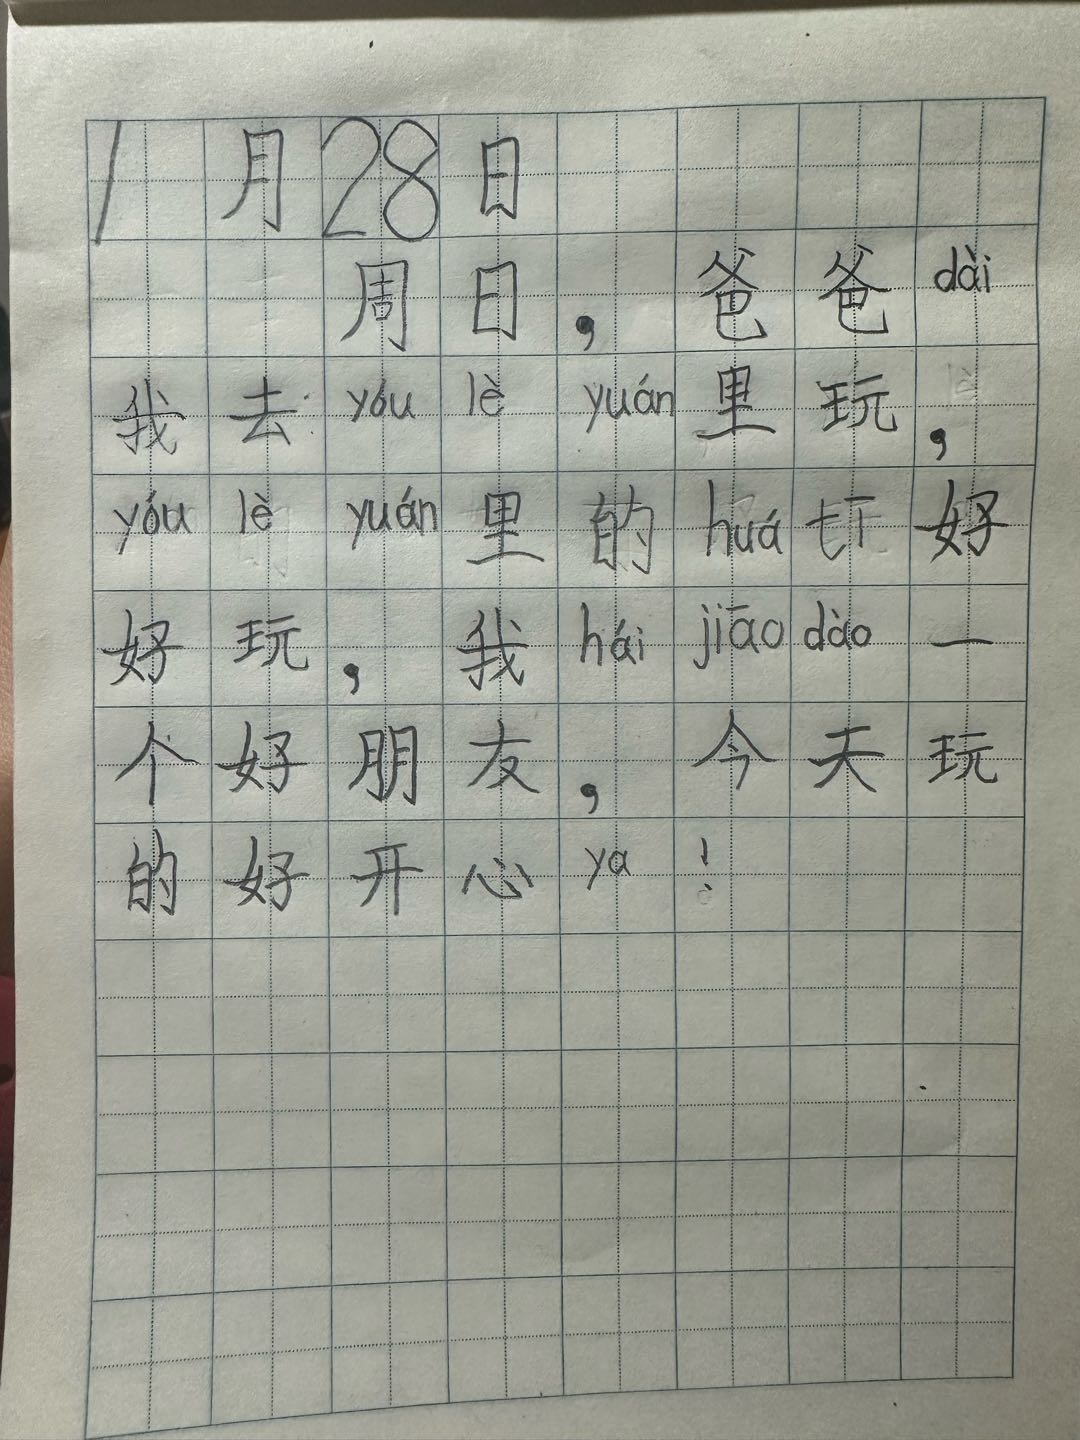 1月28日
周日，爸爸dài
我去yóu lè yuán里玩，
yóu lè yuán里的huá 好
好玩，我hái jiāo dào一
个好朋友，今天玩
的好开心ya！